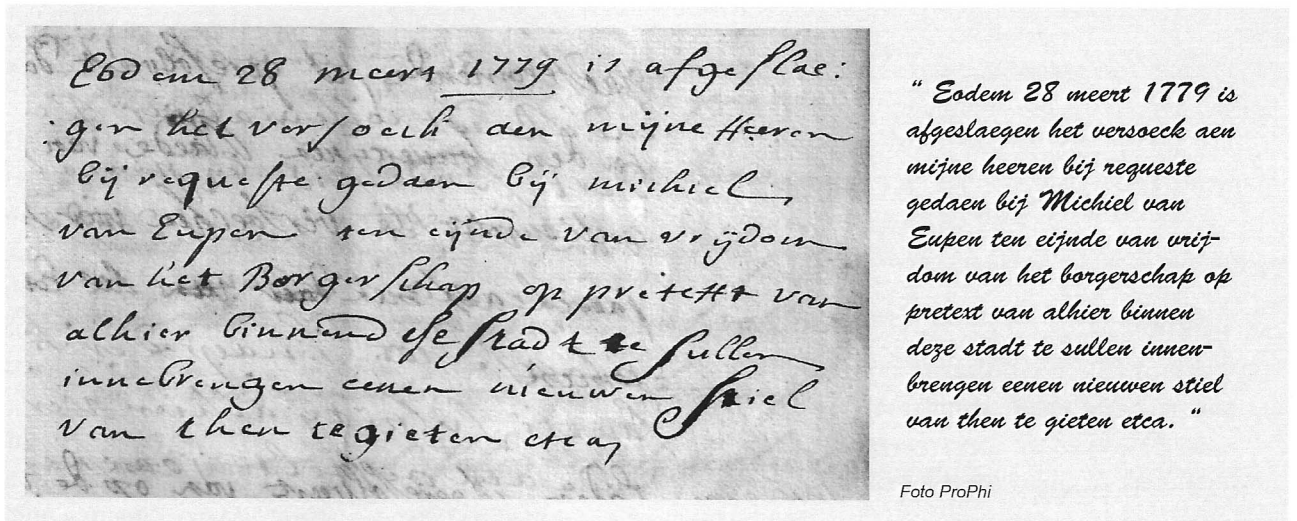 Eodem 28 meert 1779 is afgeslae:
gen het versoeck aen mijne Heeren
bij requeste gedaen bij michiel
van Eupen ten eijnde van vrijdom
van het Borgerschap op pretext van
alhier binnen dese stadt te sullen
innebrengen eenen nieuwen stiel
van then te gieten etca,
“ Eodem 28 meert 1779 is
afgeslaegen het versoeck aen
mijne heeren bij requeste
gedaen bij Michiel van
Eupen ten eijnde van vrij-
dom van het borgerschap op
pretext van alhier binnen
deze stadt te sullen innen-
brengen eenen nieuwen stiel
van then te gieten etca. “
Foto ProPhi